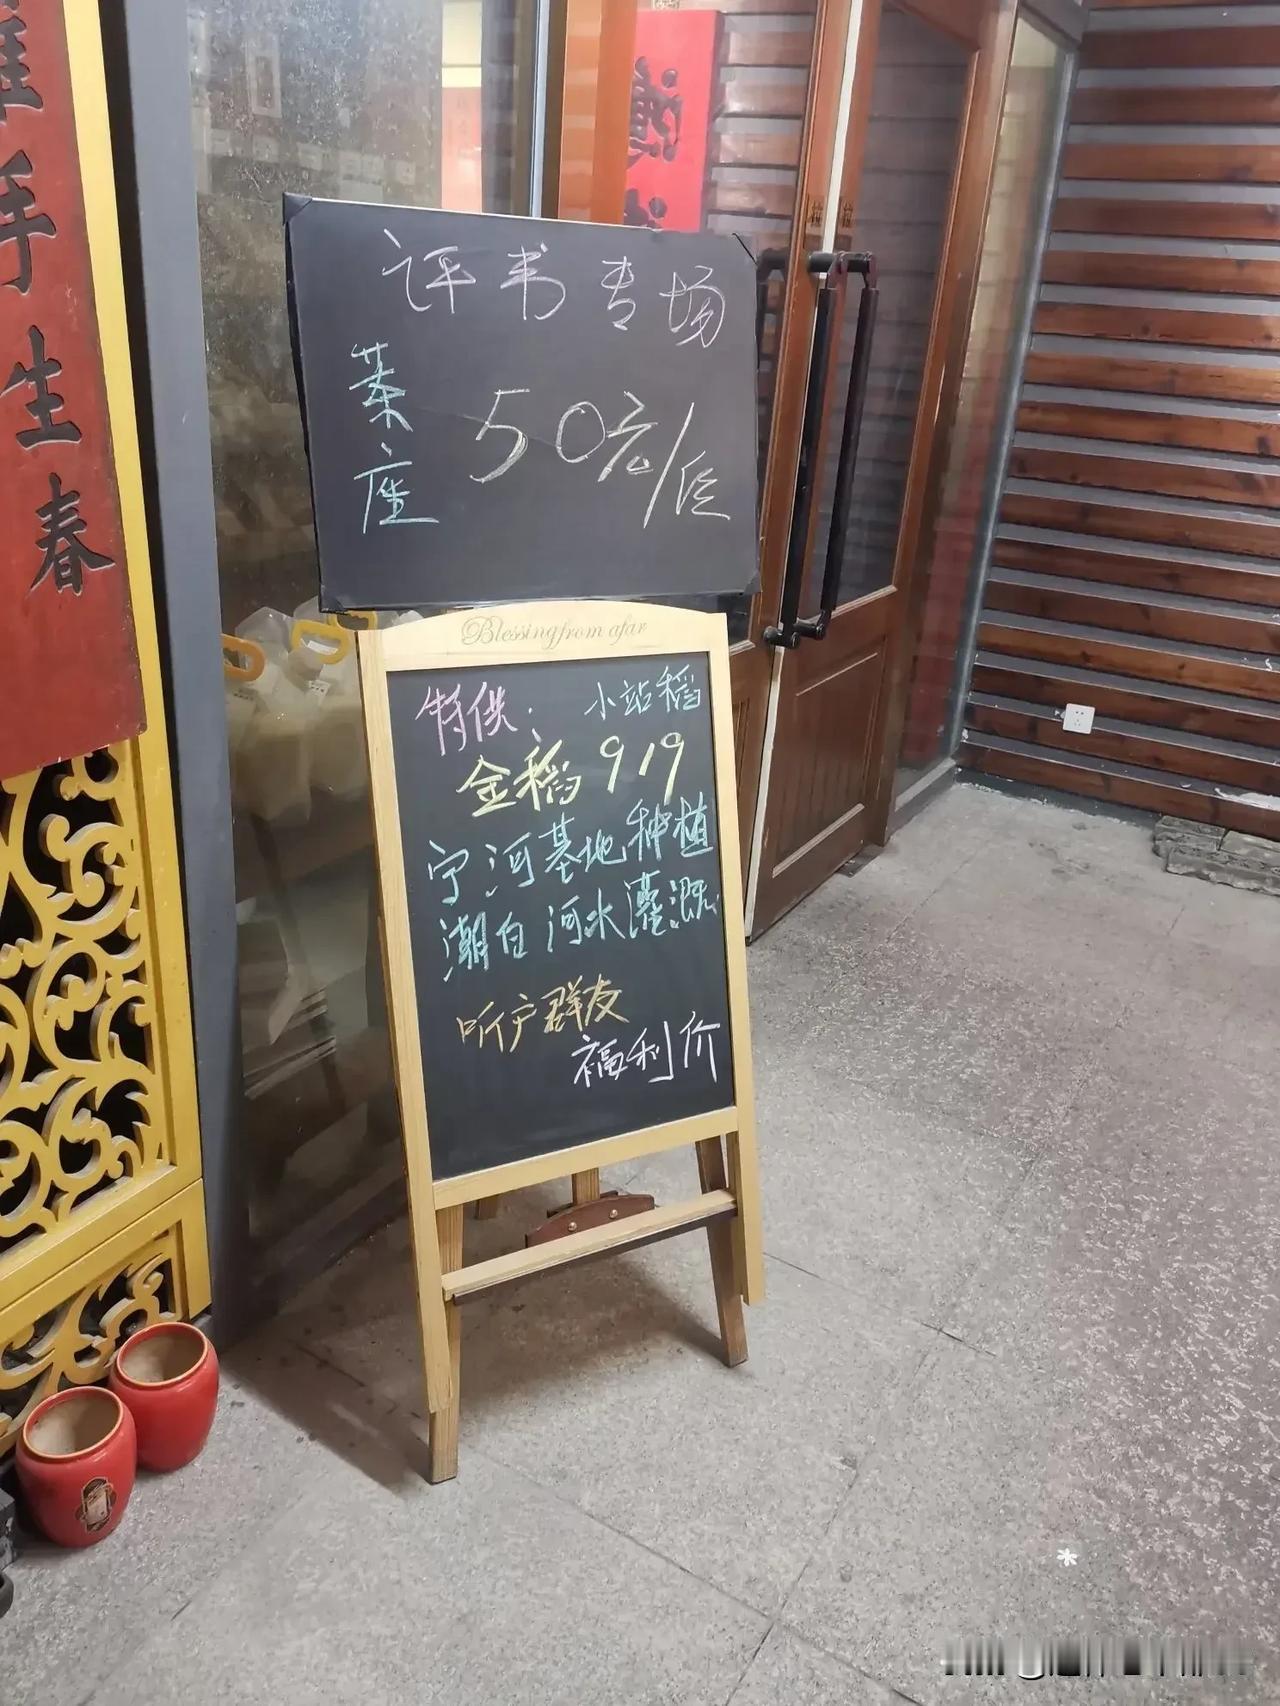 手生春
评书专场
茶座
50元/位
Blessing from afar
特供: 小站稻
金稻919
宁河基地种植
潮白河水灌溉
听户群友
福利价